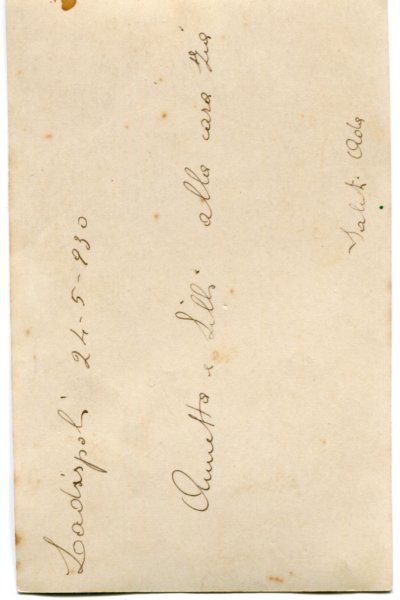 Ladispoli 24-5-930
Annetta e Lilli alla cara zia
Saluti Ada